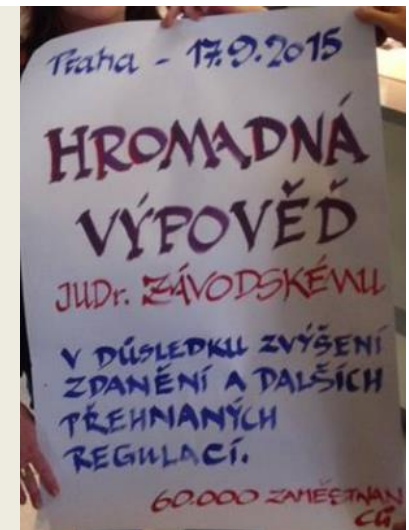 Praha - 17.9.2015
HROMADNÁ
VÝPOVĚĎ
JUDr. ZÁVODSKÉMU
V DŮSLEDKU ZVÝŠENÍ
ZDANĚNÍ A DALŠÍCH
PŘEHNANÝCH
REGULACÍ.
60.000 ZAMĚSTNAN
CŮ